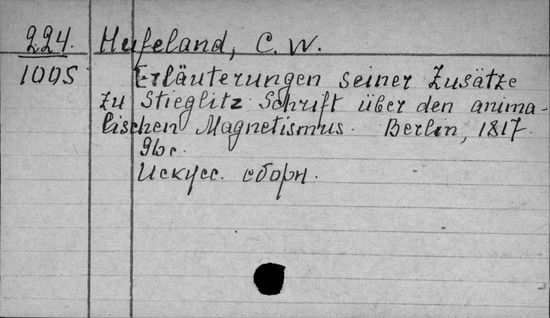 224. Hufeland, C. W.
1005 Erläuterungen seiner Zusätze
zu Stieglitz Schrift über den anima-
lischen Magnetismus. Berlin, 1817.
96 с.
Искусс. сборн.